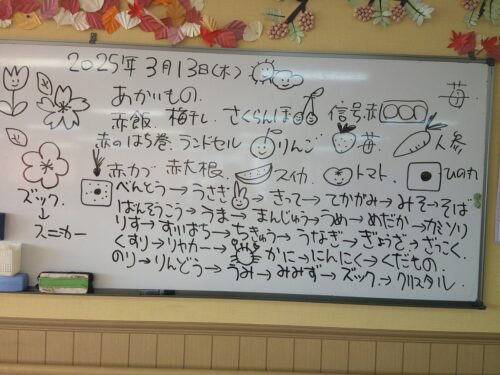 2025年3月13日(木)
苺
あかいもの.
赤飯. 梅干し. さくらんぼ 信号赤
赤のはち巻. ランドセル りんご 苺 人参
赤カブ 赤大根. スイカ. トマト. ひのれ
ズック.
↓
スニーカー
べんとう→うさぎ→きって→てかがみ→みそ→そば
ばんそうこう→うま→まんじゅう→うめ→めだか→カミソリ
りす→すいはち→ちきゅう→うなぎ→ぎょうざ→ざっこく.
くすり→リヤカー→かに→にんにく→くだもの.
のり→りんどう→うみ→みみず→ズック→クリスタル.